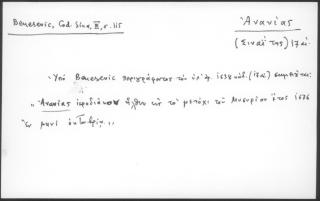 Benesevic, Cod. Sinα, III, σ. 315
Ἀνανίας
(Σιναΐτης) 17 αἰ.
Ὑπὸ Benesevic περιγράφοντος τὸν ὑπ' ἀρ. 1638 κώδ. (17 αἰ.) σημειοῦται:
"Ἀνανίας ἱεροδιάκονος ἦλθεν εἰς τὸ μετόχι τοῦ Μισυρίου ἔτος 1676
ἐν μηνὶ ὀκτωβρίῳ"